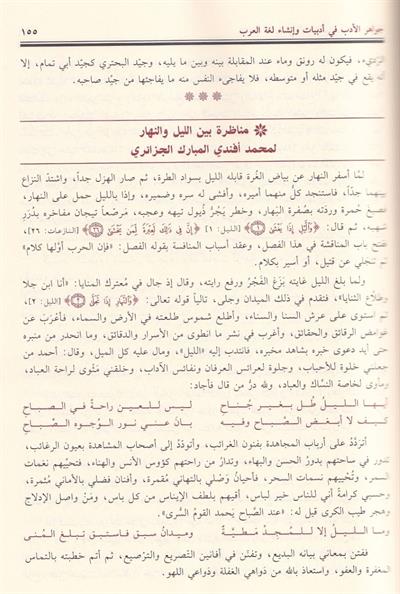 جواهر الأدب في أدبيات وإنشاء لغة العرب ١٥٥
الرديء، فيكون له رونق وماء عند المقابلة بينه وبين ما يليه، وجيّد البحتري كجيد أبي تمام، إلا
أنه يقع في جيد مثله أو متوسطه، فلا يفاجىء النفس منه ما يفاجئها من جيد صاحبه.
مناظرة بين الليل والنهار
لمحمد أفندي المبارك الجزائري
لمّا أسفر النهار عن بياض الغرة قابله الليل بسواد الطرة، ثم صار الهزل جداً، واشتد النزاع
بينهما جداً، فاستنجد كلٌ منهما أميره، وأفشى له سره وضميره، وإذا بالليل حمل على النهار،
فصبغ حُمرة وردته بصُفرة البَهار، وخطر يجرُّ ذُيول تيهه وعجبه، مُرصّعاً تيجان مفاخره بدُرَر
شهبه، ثم قال: ﴿وَالَّيْلِ إِذَا يَغْشَى﴾ [الليل: ١] ﴿إِنَّ فِي ذَلِكَ لَعِبْرَةً لِمَن يَخْشَى﴾ [النازعات: ٢٦]،
ففتح باب المناقشة في هذا الفصل، وعقد أسباب المنافسة بقوله الفصل: «فإن الحرب أوّلها كلام»
ثم تنجلي عن قتيل، أو أسير بكلام.
ولما بلغ الليل غايته بَزَغ الفَجْرُ ورفع رايته، وقال إذ جال في معترك المنايا: «أنا ابن جلا
وطلاّع الثنايا»، فتقدم في ذلك الميدان وجلى، تالياً قوله تعالى: ﴿وَالنَّهَارِ إِذَا تَجَلَّى﴾ [الليل: ٢]،
ثم استوى على عرش السنا والسناء، وأطلع شموس طلعته في الأرض والسماء، فأعرَبَ عن
غوامض الرقائق والحقائق، وأغرب في نشر ما انطوى من الأسرار والدقائق، وما انحدر من منبره
حتى أيد دعوى خبره بشاهد مخبره، فانتدب إليه «الليل»، ومال عليه كل الميل، وقال: أحمد من
جعلني خلوة للأحباب، وجلوة لعرائس العرفان ونفائس الآداب، وخلقني مثوًى لراحة العباد،
ومأوى لخاصة النسّاك والعباد، ولله درُّ من قال فأجاد:
أيها الليلُ طُل بغيرِ جُناحِ ليس للعين راحةٌ في الصباحِ
كيف لا أُبغض الصباحَ وفيه بان عني نور الوجُوه الصِّباحِ
أتردَّدُ على أرباب المجاهدة بفنون الغرائب، وأتودّدُ إلى أصحاب المشاهدة بعيون الرغائب،
تدور في ساحتهم بدورُ الحسن والبهاء، وتدارُ من راحتهم كؤوس الأنس والهناء، فتحيّيهم نغمات
السمر، وتُحييهم نسمات السحر، فأحيانُ وَصْلي بالتهاني مُقمرة، وأفنان فضلي بالأماني مُثمرة،
وحسبي كرامةً أني للناس خير لباس، أقيهم بلطف الإيناس من كل باس، ومَنْ واصل الإدلاج
وهجر طيب الكرى قيل له: «عند الصباح يَحمد القومُ السُّرى».
وما الليل إلا للمُجدّ مَطيَّةٌ وميدان سبق فاستبق تبلغ المُنى
ففتن بمعاني بيانه البديع، وتفنّن في أفانين التصريع والترصيع، ثم أتم خطبته بالتماس
المغفرة والعفو، واستعاذ بالله من دواهي الغفلة ودواعي اللهو.